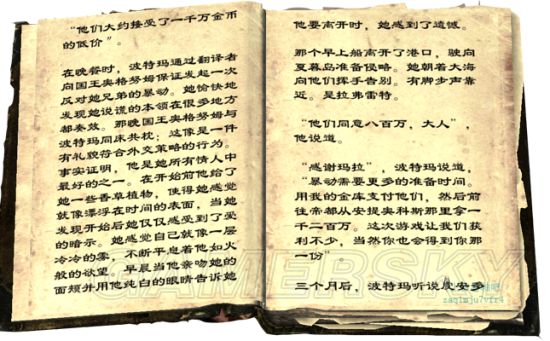 “他们大约接受了一千万金币
的低价”。
在晚餐时，波特玛通过翻译者
向国王奥格努姆保证发起一次
反对她兄弟的暴动。她愉快地
发现她说谎的本领在很多地方
都奏效。那晚国王奥格努姆与
波特玛同床共枕；这像是一件
有礼貌符合外交策略的行为。
事实证明，他是她所有情人中
最好的之一。在开始前他给了
她一些香草植物，使得她感觉
就像漂浮在时间的表面，当她
发现开始后她仅仅感受到了爱
的暗示。她感觉自己就像一层
冷冷的雾，不断平息着他如火
般的欲望。早晨当他亲吻她的
面颊并用他纯白的眼睛告诉她
他要离开时，她感到了遗憾。
那个早上船离开了港口，驶向
夏暮岛准备侵略。她朝着大海
向他们挥手告别。有脚步声靠
近。是拉弗雷特。
“他们同意八百万，大人”，
他说道。
“感谢玛拉”，波特玛说道，
“暴动需要更多的准备时间。
用我的金库支付他们，然后前
往帝都从安提奥科斯那里拿一
千二百万。这次游戏让我们获
利不少，当然你也会得到你那
一份”。
三个月后，波特玛听说皮安多
GAMERSKY
zaqlmju7vfr4